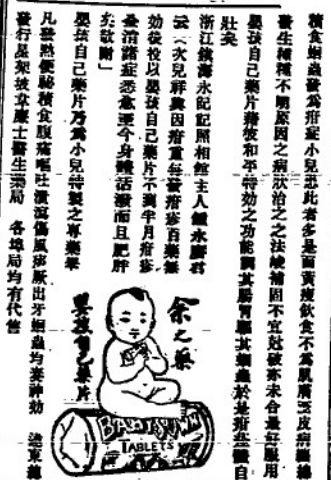 積食蛔蟲發為疳症小兒患此者多是面黃瘦飲食不為肌膚
發生種種不明原因之病狀治之之法峻補固不宜尅破亦未合最好服用
嬰孩自己藥片藉彼和平特効之功能調其腸胃驅其蛔蟲於是疳症自
壯矣
浙江鎮海永記照相館主人鍾永康君
云「次兒祥興因疳重每發疳疹百藥無
効後投以嬰孩自己藥片不到半月疳疹
諸症悉愈至今身體活潑而且肥胖
敬謝」
嬰孩自己藥片乃為小兒特製之專藥
凡發熱便祕積食腹痛嘔吐瀉傷風出牙蛔蟲均神効
發行是架披韋廉士醫生藥局 各埠局均有代售
余之藥
嬰孩自己藥片
BABY'S OWN
TABLETS